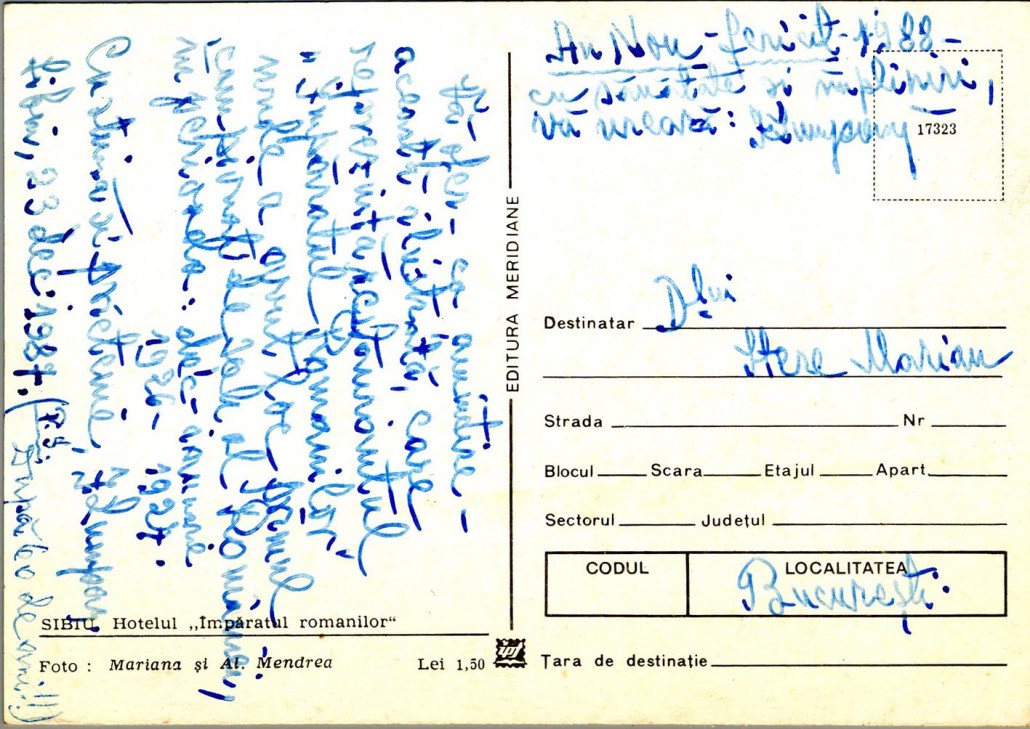 An Nou fericit 1988 -
cu sănătate și împliniri,
vă urează:
17323
Vă ofer - ca amintire -
această ilustrată, care
reprezintă restaurantul
„Împăratul Romanilor”
unde a avut loc primul
campionat de șah al României,
în perioada: dec - ianuarie
1926 - 1927.
Cu stimă și prietenie,
Sibiu, 23 dec. 1987. (P.S. După 60 de ani!!)
EDITURA MERIDIANE
Destinatar D-lui
Stere Marian
Strada Nr
Blocul Scara Etajul Apart.
Sectorul Județul
CODUL LOCALITATEA
București.
Țara de destinație
SIBIU Hotelul „Împăratul romanilor“
Foto : Mariana și Al. Mendrea Lei 1,50